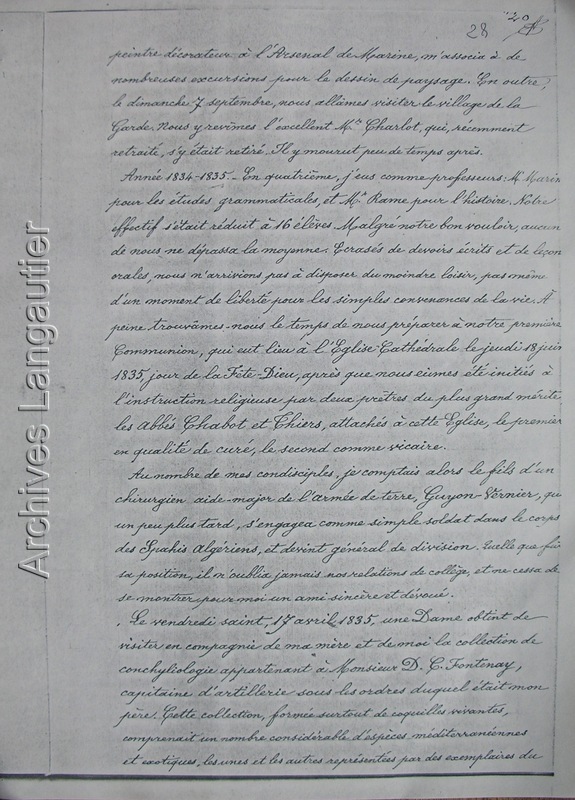 28
peintre décorateur à l'Arsenal de Marine, m'associa à de
nombreuses excursions pour le dessin de paysage. En outre,
le dimanche 7 septembre, nous allâmes visiter le village de la
Garde. Nous y revîmes l'excellent Mr Charlot, qui, récemment
retraité, s'y était retiré. Il y mourut peu de temps après.
Année 1834-1835. _ En quatrième, j'eus comme professeurs: Mr Marin
pour les études grammaticales, et Mr Rame pour l'histoire. Notre
effectif s'était réduit à 16 élèves. Malgré notre bon vouloir, aucun
de nous ne dépassa la moyenne. Ecrasés de devoirs écrits et de leçon
orales, nous n'arrivions pas à disposer du moindre loisir, pas même
d'un moment de liberté pour les simples convenances de la vie. À
peine trouvâmes-nous le temps de nous préparer à notre première
Communion, qui eut lieu à l'Eglise Cathédrale le jeudi 18 juin
1835 jour de la Fête-Dieu, après que nous eûmes été initiés à
l'instruction religieuse par deux prêtres du plus grand mérite,
les Abbés Chabot et Thiers, attachés à cette Eglise, le premier
en qualité de curé, le second comme vicaire.
Au nombre de mes condisciples, je comptais alors le fils d'un
chirurgien aide-major de l'armée de terre, Guyon-Vernier, qui
un peu plus tard, s'engagea comme simple soldat dans le corps
des Spahis Algériens, et devint général de division. Quelle que fût
sa position, il n'oublia jamais nos relations de collège, et ne cessa de
se montrer pour moi un ami sincère et dévoué.
Le vendredi saint, 17 avril 1835, une Dame obtint de
visiter en compagnie de ma mère et de moi la collection de
conchyliologie appartenant à Monsieur D. C. Fontenay,
capitaine d'artillerie sous les ordres duquel était mon
père. Cette collection, formée surtout de coquilles vivantes,
comprenait un nombre considérable d'espèces méditerranéennes
et exotiques, les unes et les autres représentées par des exemplaires du
Archives Langautier